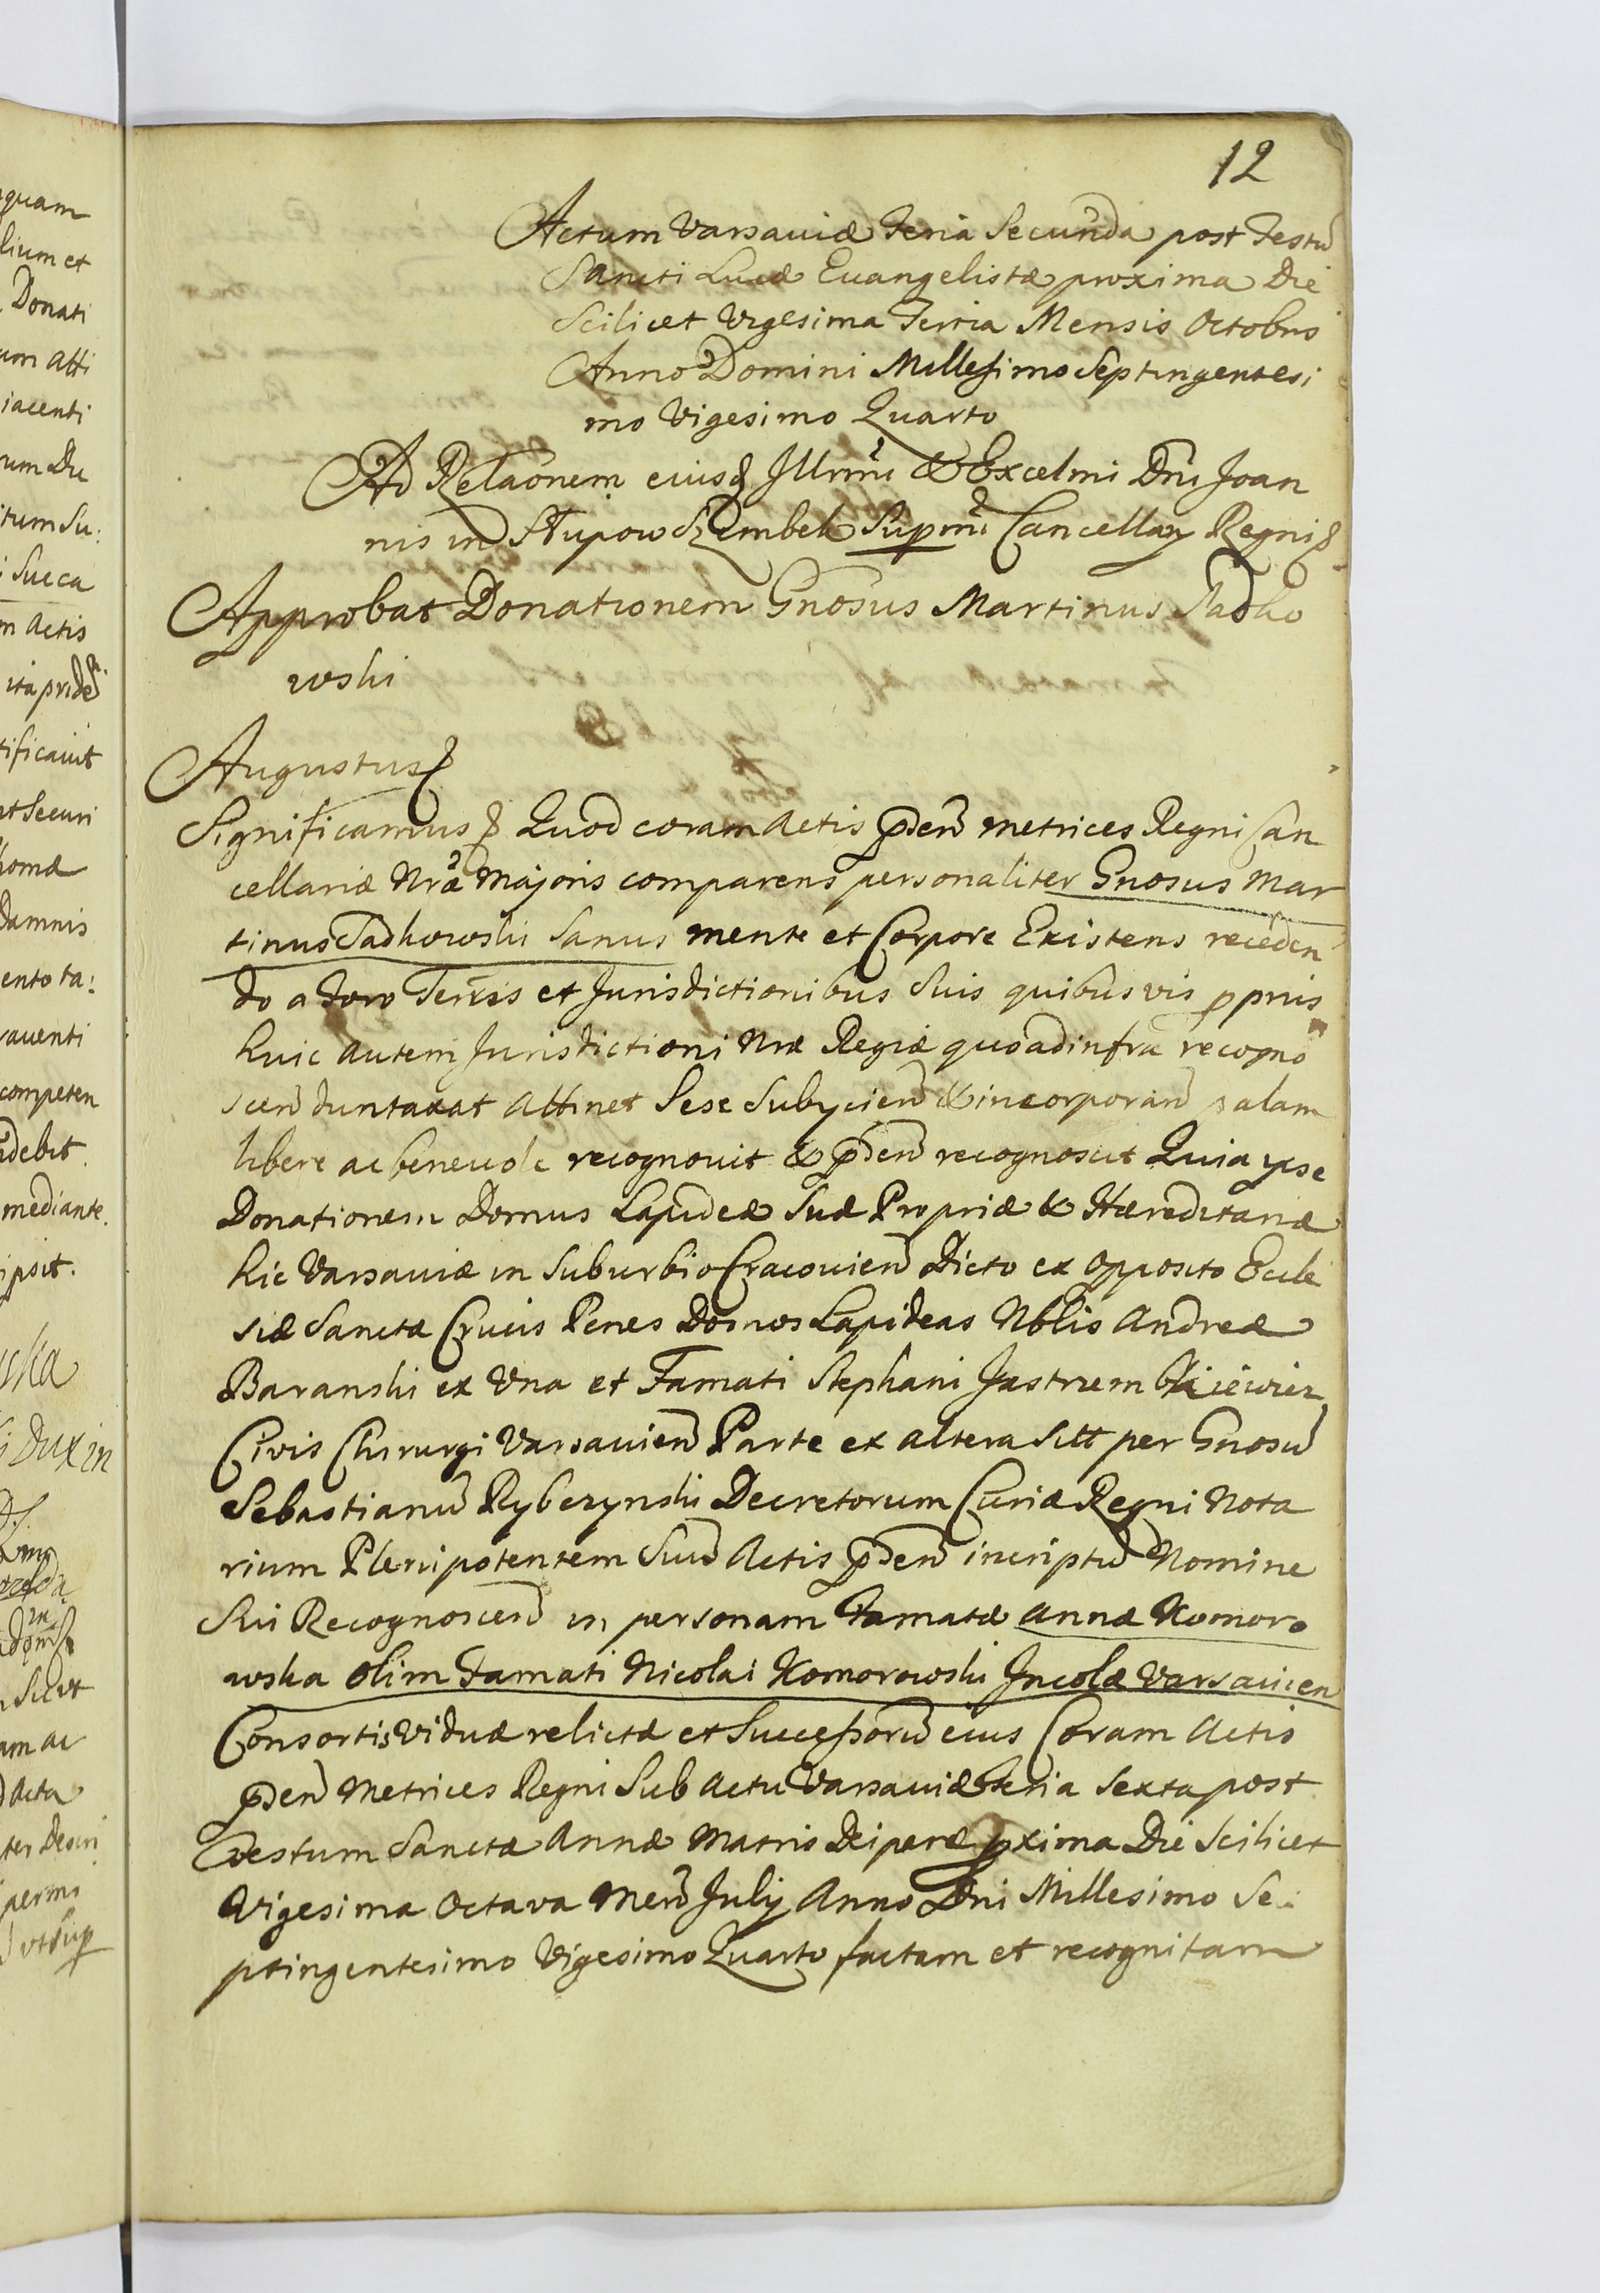 12
Actum Varsaviæ Feria Secunda post Festū
Sancti Lucæ Euangelistæ proxima Die
Scilicet Vigesima Tertia Mensis Octobris
Anno Domini Millesimo Septingentesi
mo Vigesimo Quarto
Ad Relaōnem eiusd Illrmi & Excelmi Dni Joan
nis in Słupow Szembek Supmi Cancellarij Regni
Approbat Donationem Gnosus Martinus Sadko
wski
Augustus
Significamus Quod coram Actis pden Metrices Regni Can
cellariæ Nræ Majoris comparens personaliter Gnosus Mar
tinus Sadkowski Sanus mente et Corpore Existens receden
do a Foro Terris et Jurisdictionibus Suis quibusvis ppriis
huic autem Jurisdictioni Nræ Regiæ quoad infra recogno
scen duntaxat Attinet Sese Subijcien & incorporan palam
libere ac beneuole recognouit & pden recognoscit Quia ipse
Donationem Domus Lapideæ Suæ Propriæ & Hæreditariæ
hic Varsaviæ in Suburbio Cracouien Dicto ex opposito Eccle
siæ Sanctæ Crucis Penes Domos Lapideas Nblis Andreæ
Baranski ex Una et Famati Stephani Jastrzembkiewicz
Civis Chirurgi Varsauien Parte ex altera Sitt per Gnosū
Sebastianū Rybczynski Decretorum Curiæ Regni Nota
rium Plenipotentem Suū Actis pden inscriptū Nomine
Sui Recognoscen in personam Famatæ Annæ Komoro
wska olim Famati Nicolai Komorowski Incolæ Varsauien
Consortis Viduæ relictæ et Successorū eius Coram Actis
pden Metrices Regni Sub Actu Varsaviæ Feria Sexta post
Festum Sanctæ Annæ Matris Deiparæ pxima Die Scilicet
Vigesima Octava Men July Anno Dni Millesimo Se
ptingentesimo Vigesimo Quarto factam et recognitam
quam
lium et
Donati
um Atti
iacenti
rum Du
itum Su:
Sueca
m Actis
ita prides
tificauit
at Securi
homæ
Damnis
ento ta:
raventi
competen
debit
mediante.
ipsit.
ska
Dux in
Sicut
am ac
Acta
permi
ut Sup